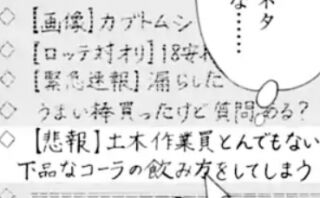 ネタ
な……
◇ 【画像】カブトムシ
◇ 【ロッテ村オリ】18安打
◇ 【緊急速報】漏らした
◇ うまい棒買ったけど質問ある?
◇ 【悲報】土木作業員とんでもない
下品なコーラの飲み方をしてしまう